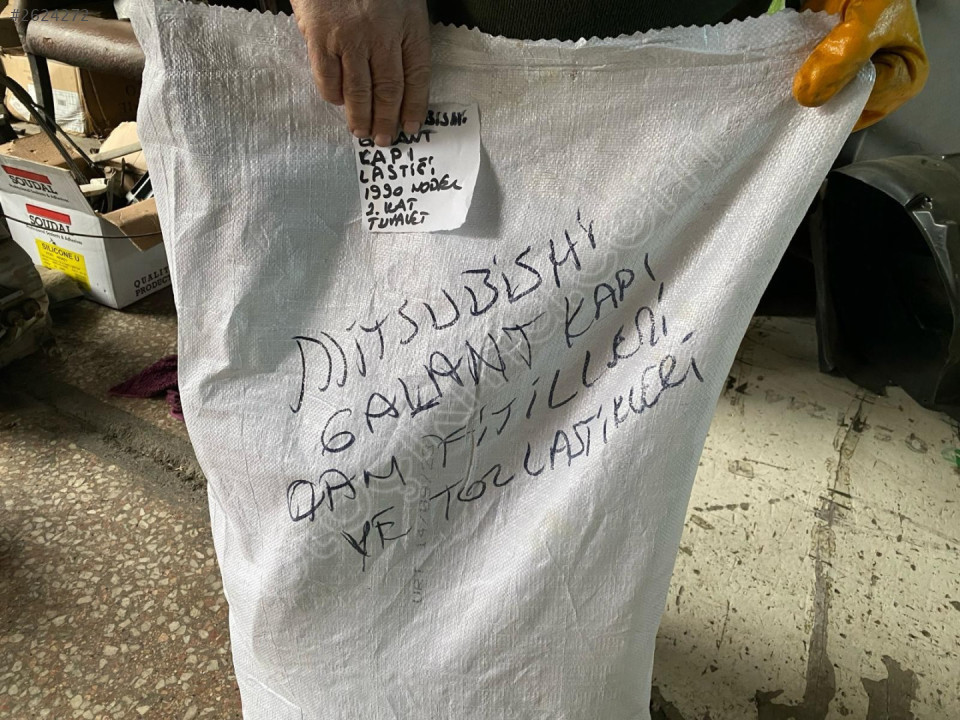 #2624272
BISHI
GALANT
KAPI
LASTİĞİ
1990 MODEL
2. KAT
TUVALET
MİTSUBİSHİ
GALANT KAPI
CAM FİTİLLERİ
VE TOZ LASTİKLERİ
SOUDAL
SOUDAL
SILICONE U
QUALITY
PRODUC